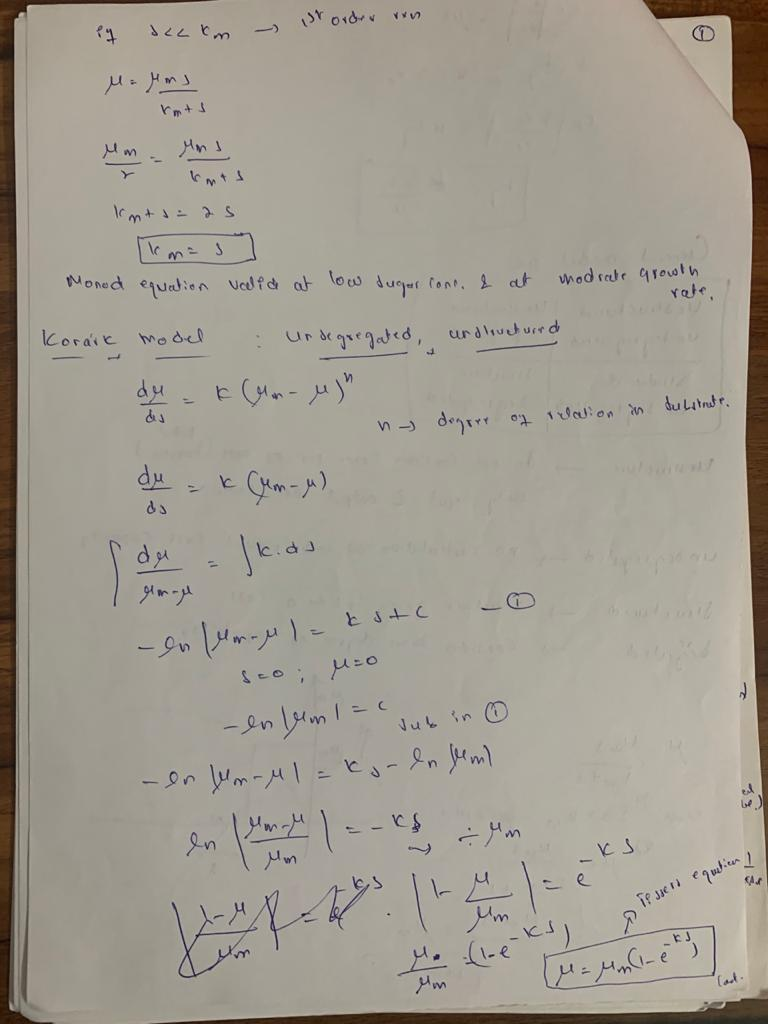 if s << km → 1st order rxn
①
μ = μm s / km + s
μm / 2 = μm s / km + s
km + s = 2s
km = s
Monod equation valid at low sugar conc. & at modrate growth rate.
model : undegregated, unstructured
dμ/ds = k (μm - μ)^n
n → degree of relation in substrate.
dμ/ds = k (μm - μ)
∫ dμ / μm - μ = ∫ k. ds
- ln |μm - μ| = k s + c — ①
s = 0 ; μ = 0
- ln |μm| = c sub in ①
- ln |μm - μ| = ks - ln |μm|
ln | μm - μ / μm | = - ks → ÷ μm
| 1 - μ / μm | = e^-ks . | 1 - μ / μm | = e^-ks
μ / μm = (1 - e^-ks) μ = μm (1 - e^-ks)
equation